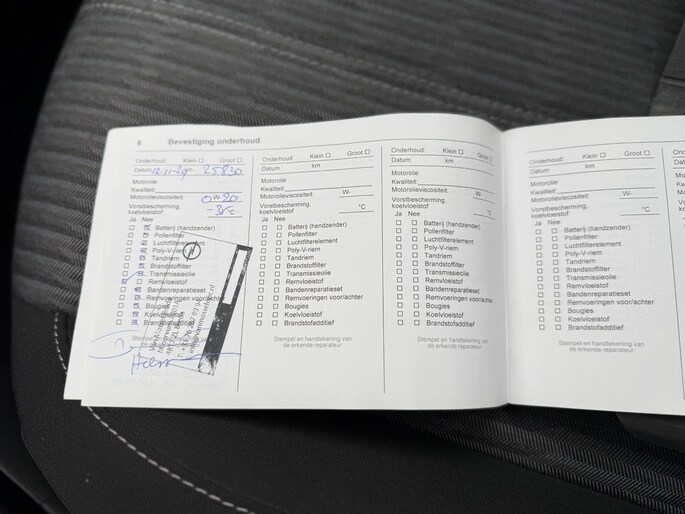 6 Bevestiging onderhoud
Onderhoud: Klein Groot
Datum 12-11-20 km 25830
Motorolie
Kwaliteit:
Motorolieviscositeit: 0 W-20
Vorstbescherming, koelvloeistof -35 °C
Ja Nee
Batterij (handzender)
Pollenfilter
Luchtfilterelement
Poly-V-riem
Tandriem
Brandstoffilter
Transmissieolie
Remvloeistof
Bandenreparatieset
Remvoeringen voor/achter
Bougies
Koelvloeistof
Brandstofadditief
Stempel en
Onderhoud: Klein Groot
Datum km
Motorolie
Kwaliteit:
Motorolieviscositeit: W-
Vorstbescherming, koelvloeistof °C
Ja Nee
Batterij (handzender)
Pollenfilter
Luchtfilterelement
Poly-V-riem
Tandriem
Brandstoffilter
Transmissieolie
Remvloeistof
Bandenreparatieset
Remvoeringen voor/achter
Bougies
Koelvloeistof
Brandstofadditief
Stempel en handtekening van
de erkende reparateur
Onderhoud: Klein Groot
Datum km
Motorolie
Kwaliteit:
Motorolieviscositeit: W-
Vorstbescherming, koelvloeistof °C
Ja Nee
Batterij (handzender)
Pollenfilter
Luchtfilterelement
Poly-V-riem
Tandriem
Brandstoffilter
Transmissieolie
Remvloeistof
Bandenreparatieset
Remvoeringen voor/achter
Bougies
Koelvloeistof
Brandstofadditief
Stempel en handtekening van
de erkende reparateur
Onderhoud: Klein Groot
Datum km
Motorolie
Kwaliteit:
Motorolieviscositeit: W-
Vorstbescherming, koelvloeistof
Ja Nee
Batterij (handzender)
Pollenfilter
Luchtfilterelement
Poly-V-riem
Tandriem
Brandstoffilter
Transmissieolie
Remvloeistof
Bandenreparatieset
Remvoeringen voor/achter
Bougies
Koelvloeistof
Brandstofadditief
Stempel en handtekening van
de erkende reparateur